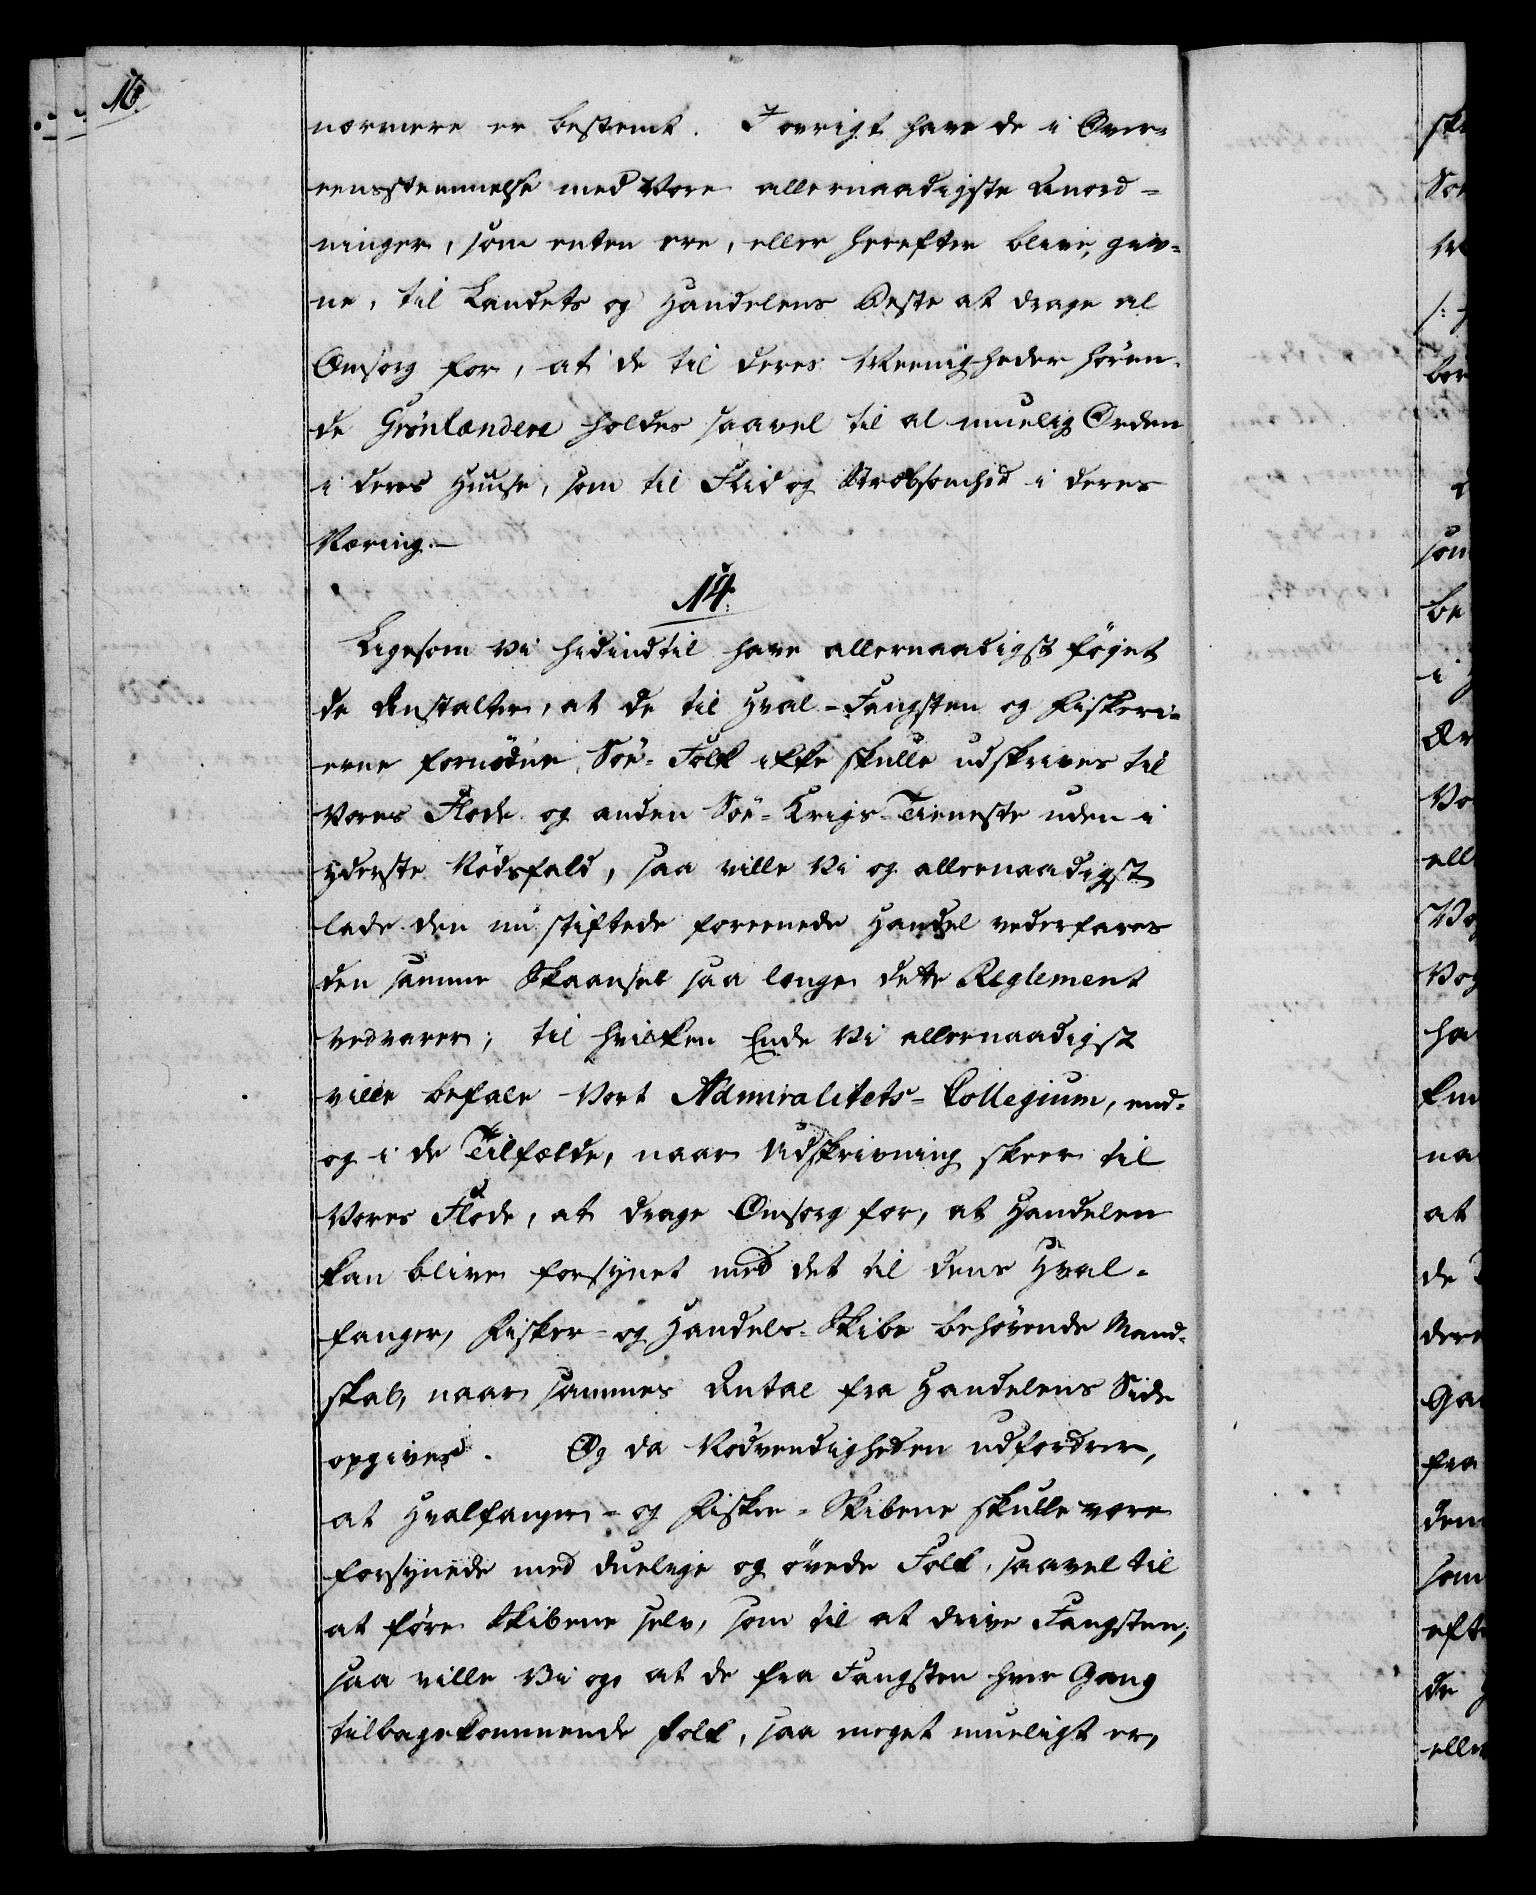 16.
nærmere er bestemt. I øvrigt have de i Over-
eensstemmelse med Vore allernaadigste Anord-
ninger, som enten ere, eller herefter blive, giv-
ne, til Landets og Handelens Beste at drage al
Omsorg for, at de til deres Meenigheder høren-
de Grönlændere holdes saavel til al muelig Orden
i deres Huuse, som til Flid og Stræbsomhed i deres
Næring.—
14.
Ligesom Vi hidindtil have allernaadigst föjet
de Anstalter, at de til Hval-Fangsten og Fiskeri-
erne fornödne Söe-Folk ikke skulle udskrives til
Vores Flode og anden Söe-Krigs-Tieneste uden i
yderste Nödsfald, saa ville Vi og allernaadigst
lade den nu stiftede foreenede Handel vederfares
den samme Skaansel saa længe dette Reglement
vedvarer; til hvilken Ende Vi allernaadigst
ville befale Vort Admiralitets-Collegium, end-
og i de Tilfælde, naar Udskrivning skeer til
Vores Flode, at drage Omsorg for, at Handelen
kan blive forsynet med det til dens Hval-
fanger, Fisker- og Handels-Skibe behövende Mand-
skab, naar sammes Antal fra Handelens Side
opgives. Og da Nödvendigheden udfordrer,
at Hvalfanger- og Fisker-Skibene skulle være
forsynede med duelige og övede Folk, saavel til
at före Skibene selv, som til at drive Fangsten;
saa ville Vi og, at de fra Fangsten hver Gang
tilbagekommende Folk, saa meget mueligt er,